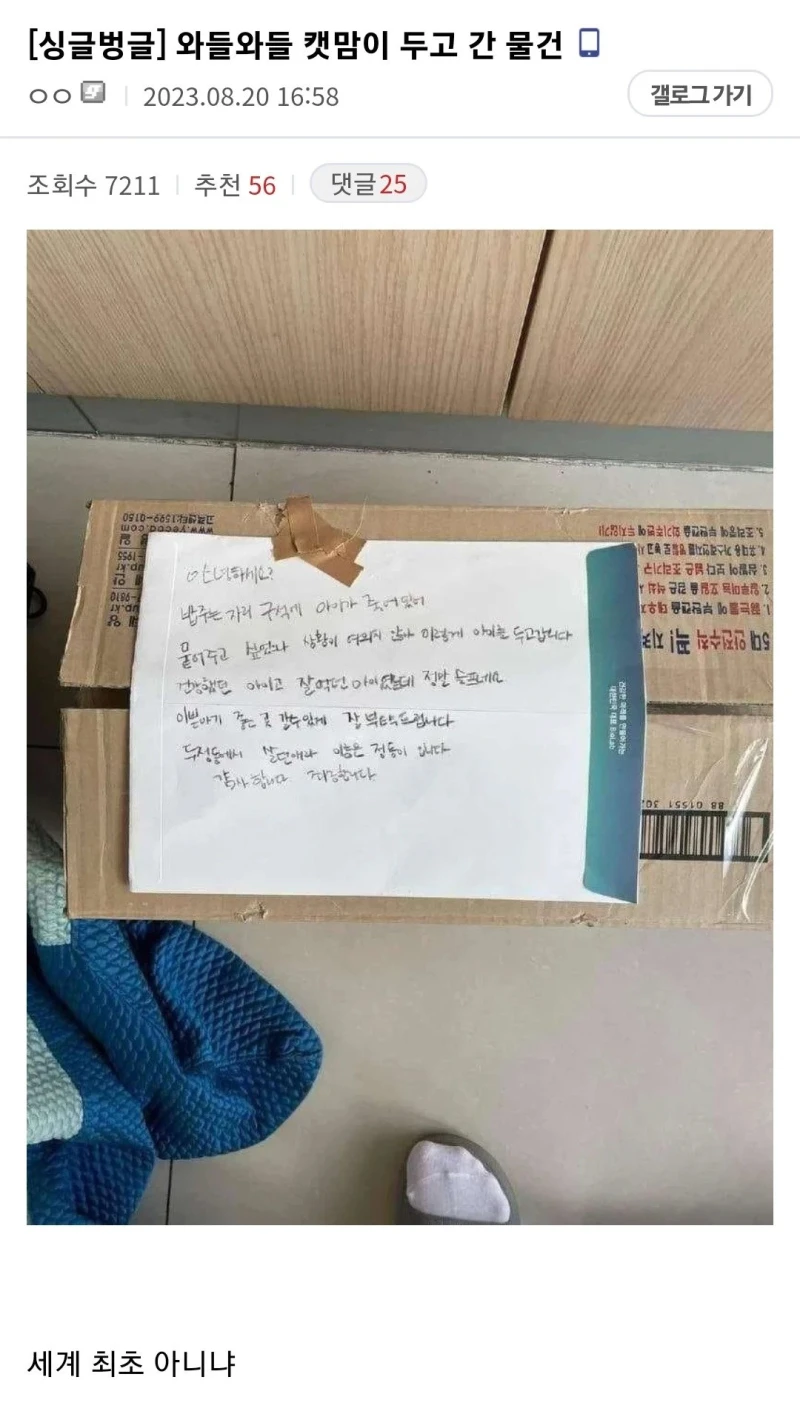 [싱글벙글] 와들와들 캣맘이 두고 간 물건
ㅇㅇ 2023.08.20 16:58 갤로그 가기
조회수 7211 추천 56 댓글 25
고객센터:1599-0150
안녕하세요?
밥주는 자리 구석에 아이가 죽어있어
묻어주고 싶었으나 상황이 여의치 않아 이렇게 아이를 두고갑니다
건강했던 아이고 잘먹던 아이였는데 정말 슬프네요
이쁜아기 좋은 곳 갈수있게 잘 부탁드립니다
두정동에서 살던애라 이름은 정동이 입니다
감사합니다 죄송합니다
건강한 미래를 만들어가는
5대 안전수칙 꼭! 지키
88 01551 30
세계 최초 아니냐